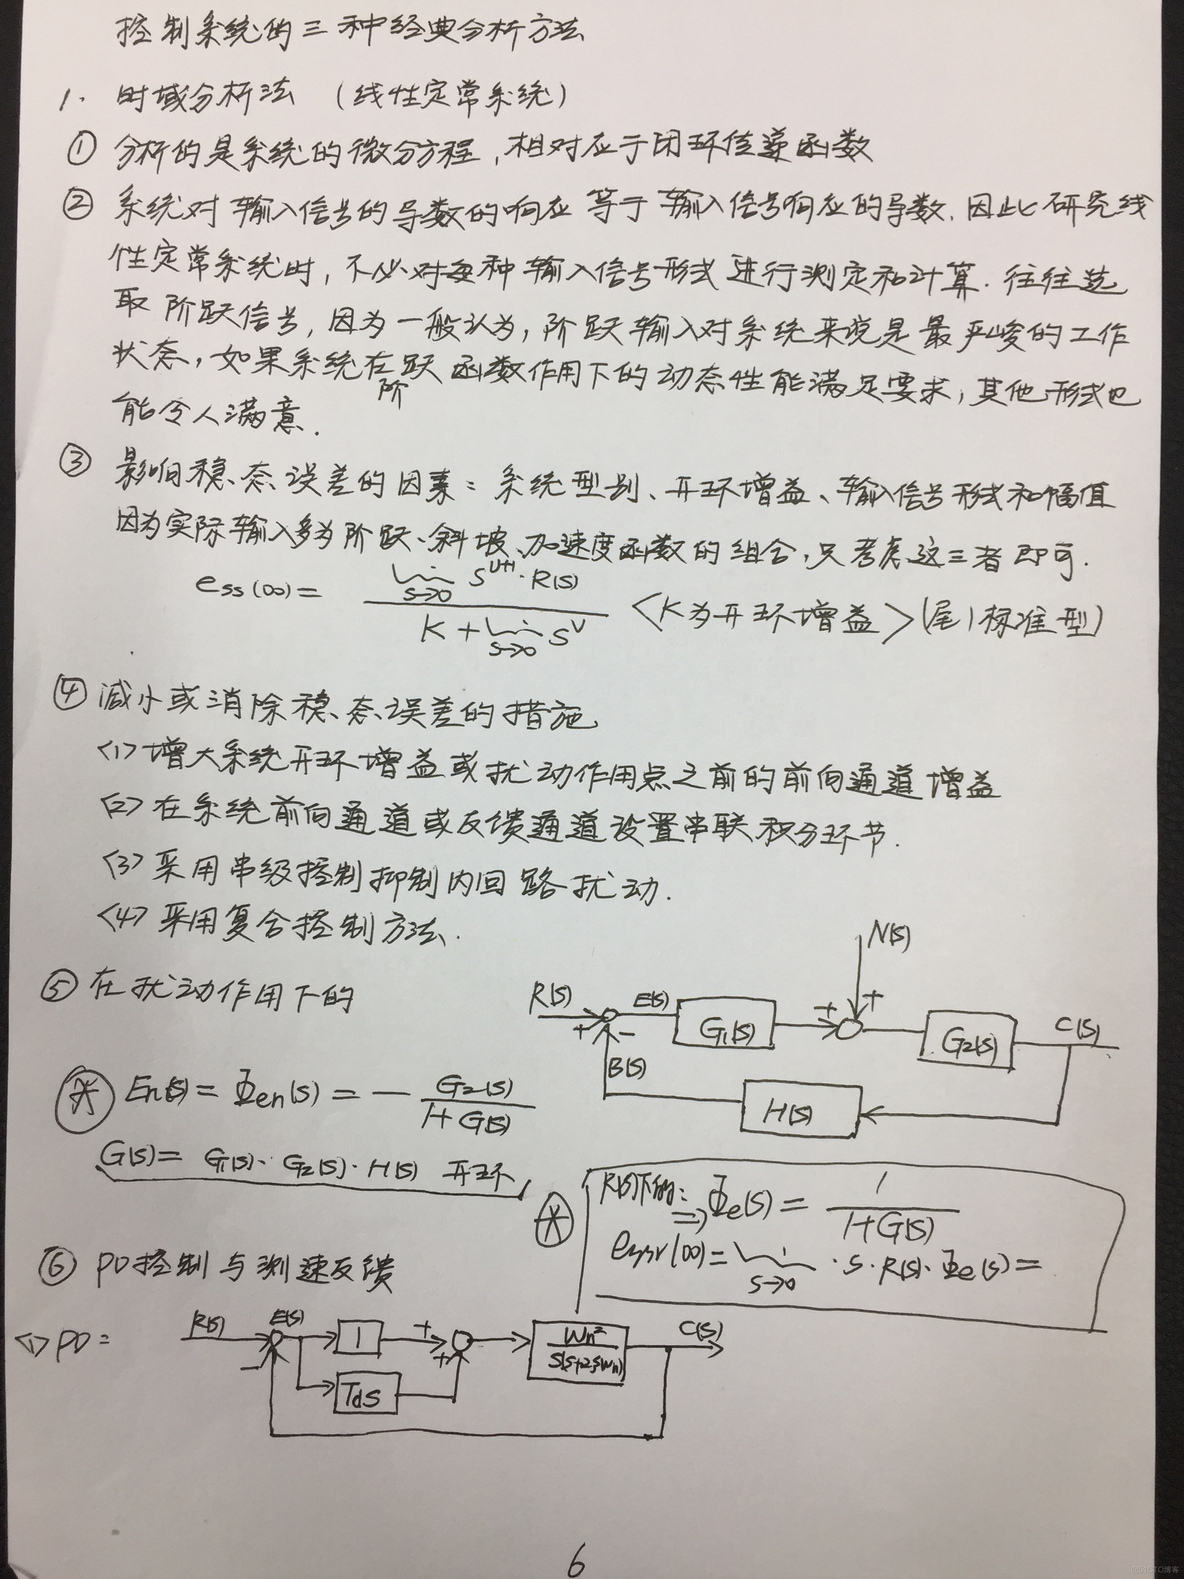 控制系统的三种经典分析方法
1. 时域分析法 (线性定常系统)
① 分析的是系统的微分方程,相对应于闭环传递函数
② 系统对输入信号的导数的响应等于输入信号响应的导数,因此研究线
性定常系统时,不必对每种输入信号形式进行测定和计算.往往选
取阶跃信号,因为一般认为,阶跃输入对系统来说是最严峻的工作
状态,如果系统在阶跃函数作用下的动态性能满足要求,其他形式也
能令人满意.
③ 影响稳态误差的因素:系统型别、开环增益、输入信号形式和幅值
因为实际输入多为阶跃、斜坡、加速度函数的组合,只考虑这三者即可.
ess(∞)= lim s→0 S^(υ+1)·R(S) / K+lim s→0 S^υ <K为开环增益>(尾1标准型)
④ 减小或消除稳态误差的措施
<1> 增大系统开环增益或扰动作用点之前的前向通道增益
<2> 在系统前向通道或反馈通道设置串联积分环节.
<3> 采用串级控制抑制内回路扰动.
<4> 采用复合控制方法.
⑤ 在扰动作用下的
N(S)
R(S) + − E(S) G1(S) + + G2(S) C(S)
B(S) H(S)
En(S)= Φen(S) = − G2(S) / 1+G(S)
G(S)= G1(S)·G2(S)·H(S) 开环
R(S)下的: ⇒ Φe(S) = 1 / 1+G(S)
essr(∞)= lim s→0 ·S·R(S)·Φe(S)=
⑥ PD控制与测速反馈
<1> PD=
R(S) − E(S) 1 + + Wn² / S(S+2ξWn) C(S)
TdS
6